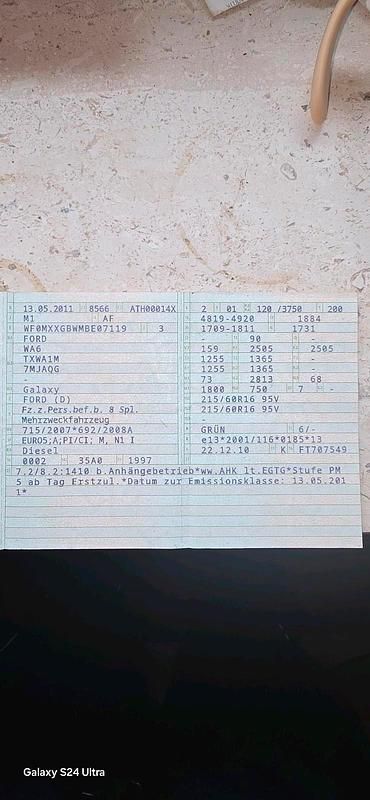 13.05.2011 8566 ATH00014X 2 01 120 /3750 200
M1 AF 4819-4920 1884
WF0MXXGBWMBE07119 3 1709-1811 1731
FORD - 90 -
WA6 159 2505 2505
TXWA1M 1255 1365 -
7MJAQG 1255 1365 -
- 73 2813 68
Galaxy 1800 750 7 -
FORD (D) 215/60R16 95V
Fz.z.Pers.bef.b. 8 Spl. 215/60R16 95V
Mehrzweckfahrzeug -
715/2007*692/2008A GRÜN 6/-
EURO5;A;PI/CI; M, N1 I e13*2001/116*0185*13
Diesel 22.12.10 K FT707549
0002 35A0 1997
7.2/8.2:1410 b.Anhängebetrieb*ww.AHK lt.EGTG*Stufe PM
5 ab Tag Erstzul.*Datum zur Emissionsklasse: 13.05.201
1*
Galaxy S24 Ultra